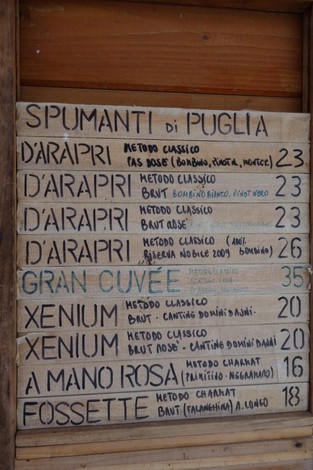 SPUMANTI di PUGLIA
D'ARAPRI METODO CLASSICO 23
PAS DOSÉ (BOMBINO, PINOT N., MONTEP.)
D'ARAPRI METODO CLASSICO 23
BRUT BOMBINO BIANCO, PINOT NERO
D'ARAPRI METODO CLASSICO 23
BRUT ROSÉ
D'ARAPRI METODO CLASSICO 26
RISERVA NOBILE 2009 BOMBINO)
GRAN CUVÉE METODO CLASSICO 35
XENIUM METODO CLASSICO 20
BRUT - CANTINE DOMINI DAUNI.
XENIUM METODO CLASSICO 20
BRUT ROSÉ - CANTINE DOMINI DAUNI
A MANO ROSA METODO CHARMAT 16
(PRIMITIVO - NEGRAMARO)
FOSSETTE METODO CHARMAT 18
BRUT (FALANGHINA) A. LONGO